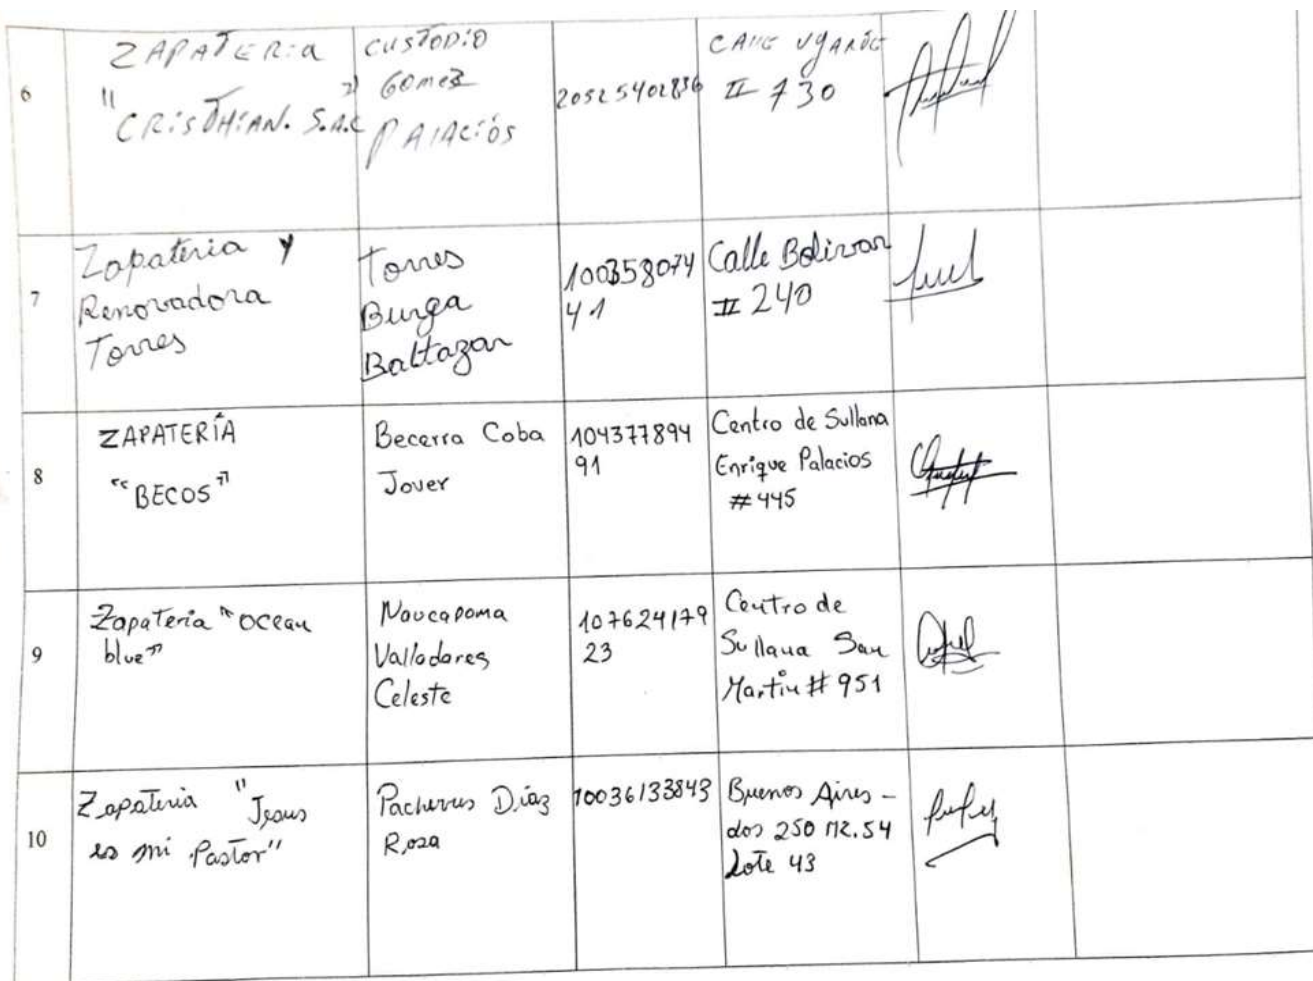 6
ZAPATERia
"CRiSTHiAN. S.A.C"
CUSTODiO
GOmez
PAlACiOS
20525402836
CAllE UgARTE
# 730
7
Zapateria y
Renovadora
Torres
Torres
Burga
Baltazar
100358074
41
Calle Bolivar
# 240
8
ZAPATERÍA
"BECOS"
Becerra Coba
Jover
104377894
91
Centro de Sullana
Enrique Palacios
#445
9
Zapateria "Ocean
blue"
Naucapoma
Valladares
Celeste
107624179
23
Centro de
Sullana San
Martin # 951
10
Zapateria "Jesus
es mi Pastor"
Pacherres Díaz
Rosa
10036133843
Buenos Aires -
dos 250 MZ.54
Lote 43